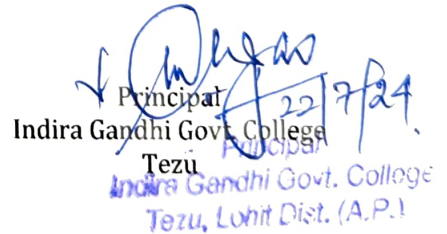 22/7/24
Principal
Indira Gandhi Govt. College
Tezu
Principal
Indira Gandhi Govt. College
Tezu, Lohit Dist. (A.P.)